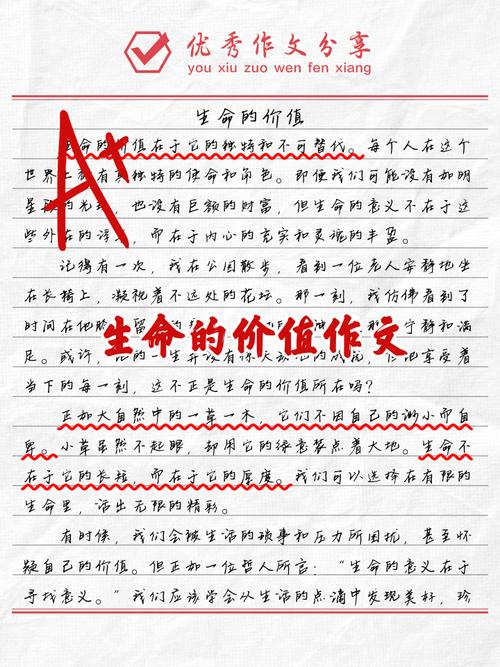 优秀作文分享
you xiu zuo wen fen xiang
生命的价值
A+
生命的价值在于它的独特和不可替代。每个人在这个
世界上都有其独特的使命和角色。即便我们可能没有如明
星般的光，也没有巨额的财富，但生命的意义不在于这
些外在的浮，而在于内心的充实和灵魂的丰盈。
记得有一次，我在公园散步，看到一位老人安静地坐
在长椅上，凝视着不远处的花坛。那一刻，我仿佛看到了
时间在他脸留宁静和满
生命的价值作文
足。或许，他的一生并没有他享受着
当下的每一刻，这不正是生命的价值所在吗？
正如大自然中的一草一木，它们不因自己的渺小而自
卑。小草虽然不起眼，却用它的绿意装点着大地。生命不
在于它的长短，而在于它的厚度。我们可以选择在有限的
生命里，活出无限的精彩。
有时候，我们会被生活的琐事和压力所困扰，甚至怀
疑自己的价值。但正如一位哲人所言：“生命的意义在于
寻找意义。”我们应该学会从生活的点滴中发现美好，珍